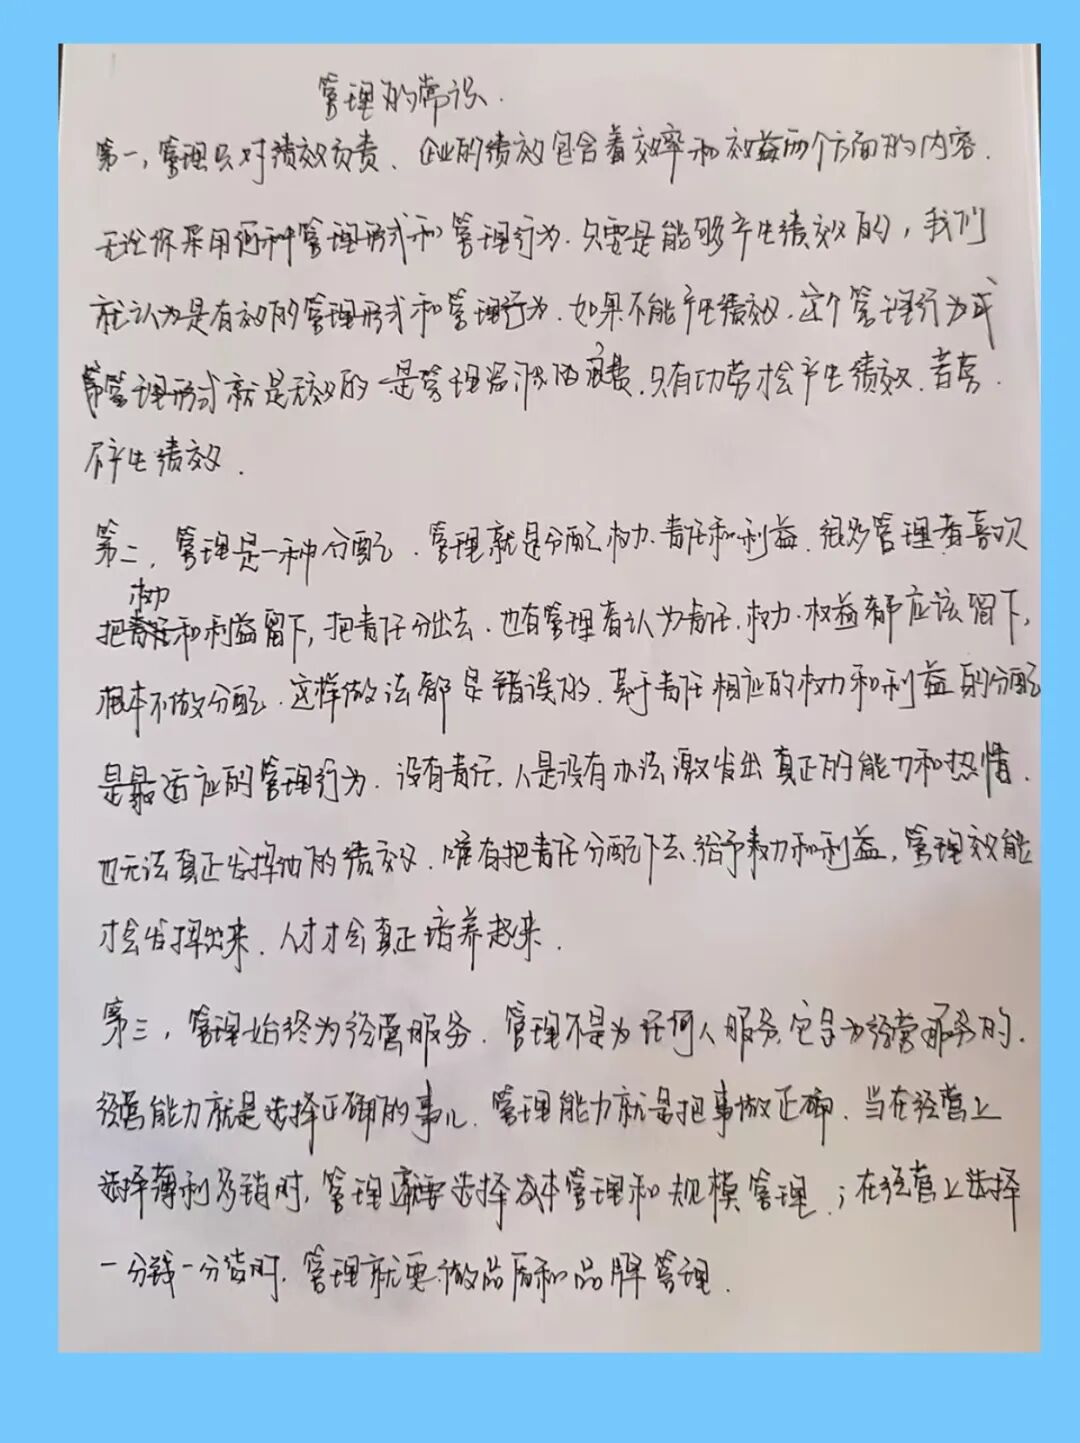 管理的常识.
第一,管理只对绩效负责、企业的绩效包含着效率和效益两个方面的内容.
无论你采用何种管理形式和管理行为.只要是能够产生绩效的,我们
就认为是有效的管理形式和管理行为.如果不能产生绩效.这个管理行为或
管理形式就是无效的 是管理资源的浪费.只有功劳才会产生绩效.苦劳.
不产生绩效.
第二、管理是一种分配.管理就是分配权力.责任和利益.很多管理者喜欢
把权力和利益留下,把责任分出去.也有管理者认为责任.权力.权益都应该留下,
根本不做分配.这样做法都是错误的.基于责任相应的权力和利益的分配
是最适应的管理行为.没有责任.人是没有办法激发出真正的能力和热情.
也无法真正发挥他们的绩效.唯有把责任分配下去.给予权力和利益,管理效能
才会发挥出来.人才才会真正培养起来.
第三,管理始终为经营服务.管理不是为任何人服务,它是为经营服务的.
经营能力就是选择正确的事儿.管理能力就是把事做正确.当在经营上
选择薄利多销时,管理就要选择成本管理和规模管理.;在经营上选择
一分钱一分货时.管理就要做品质和品牌管理.